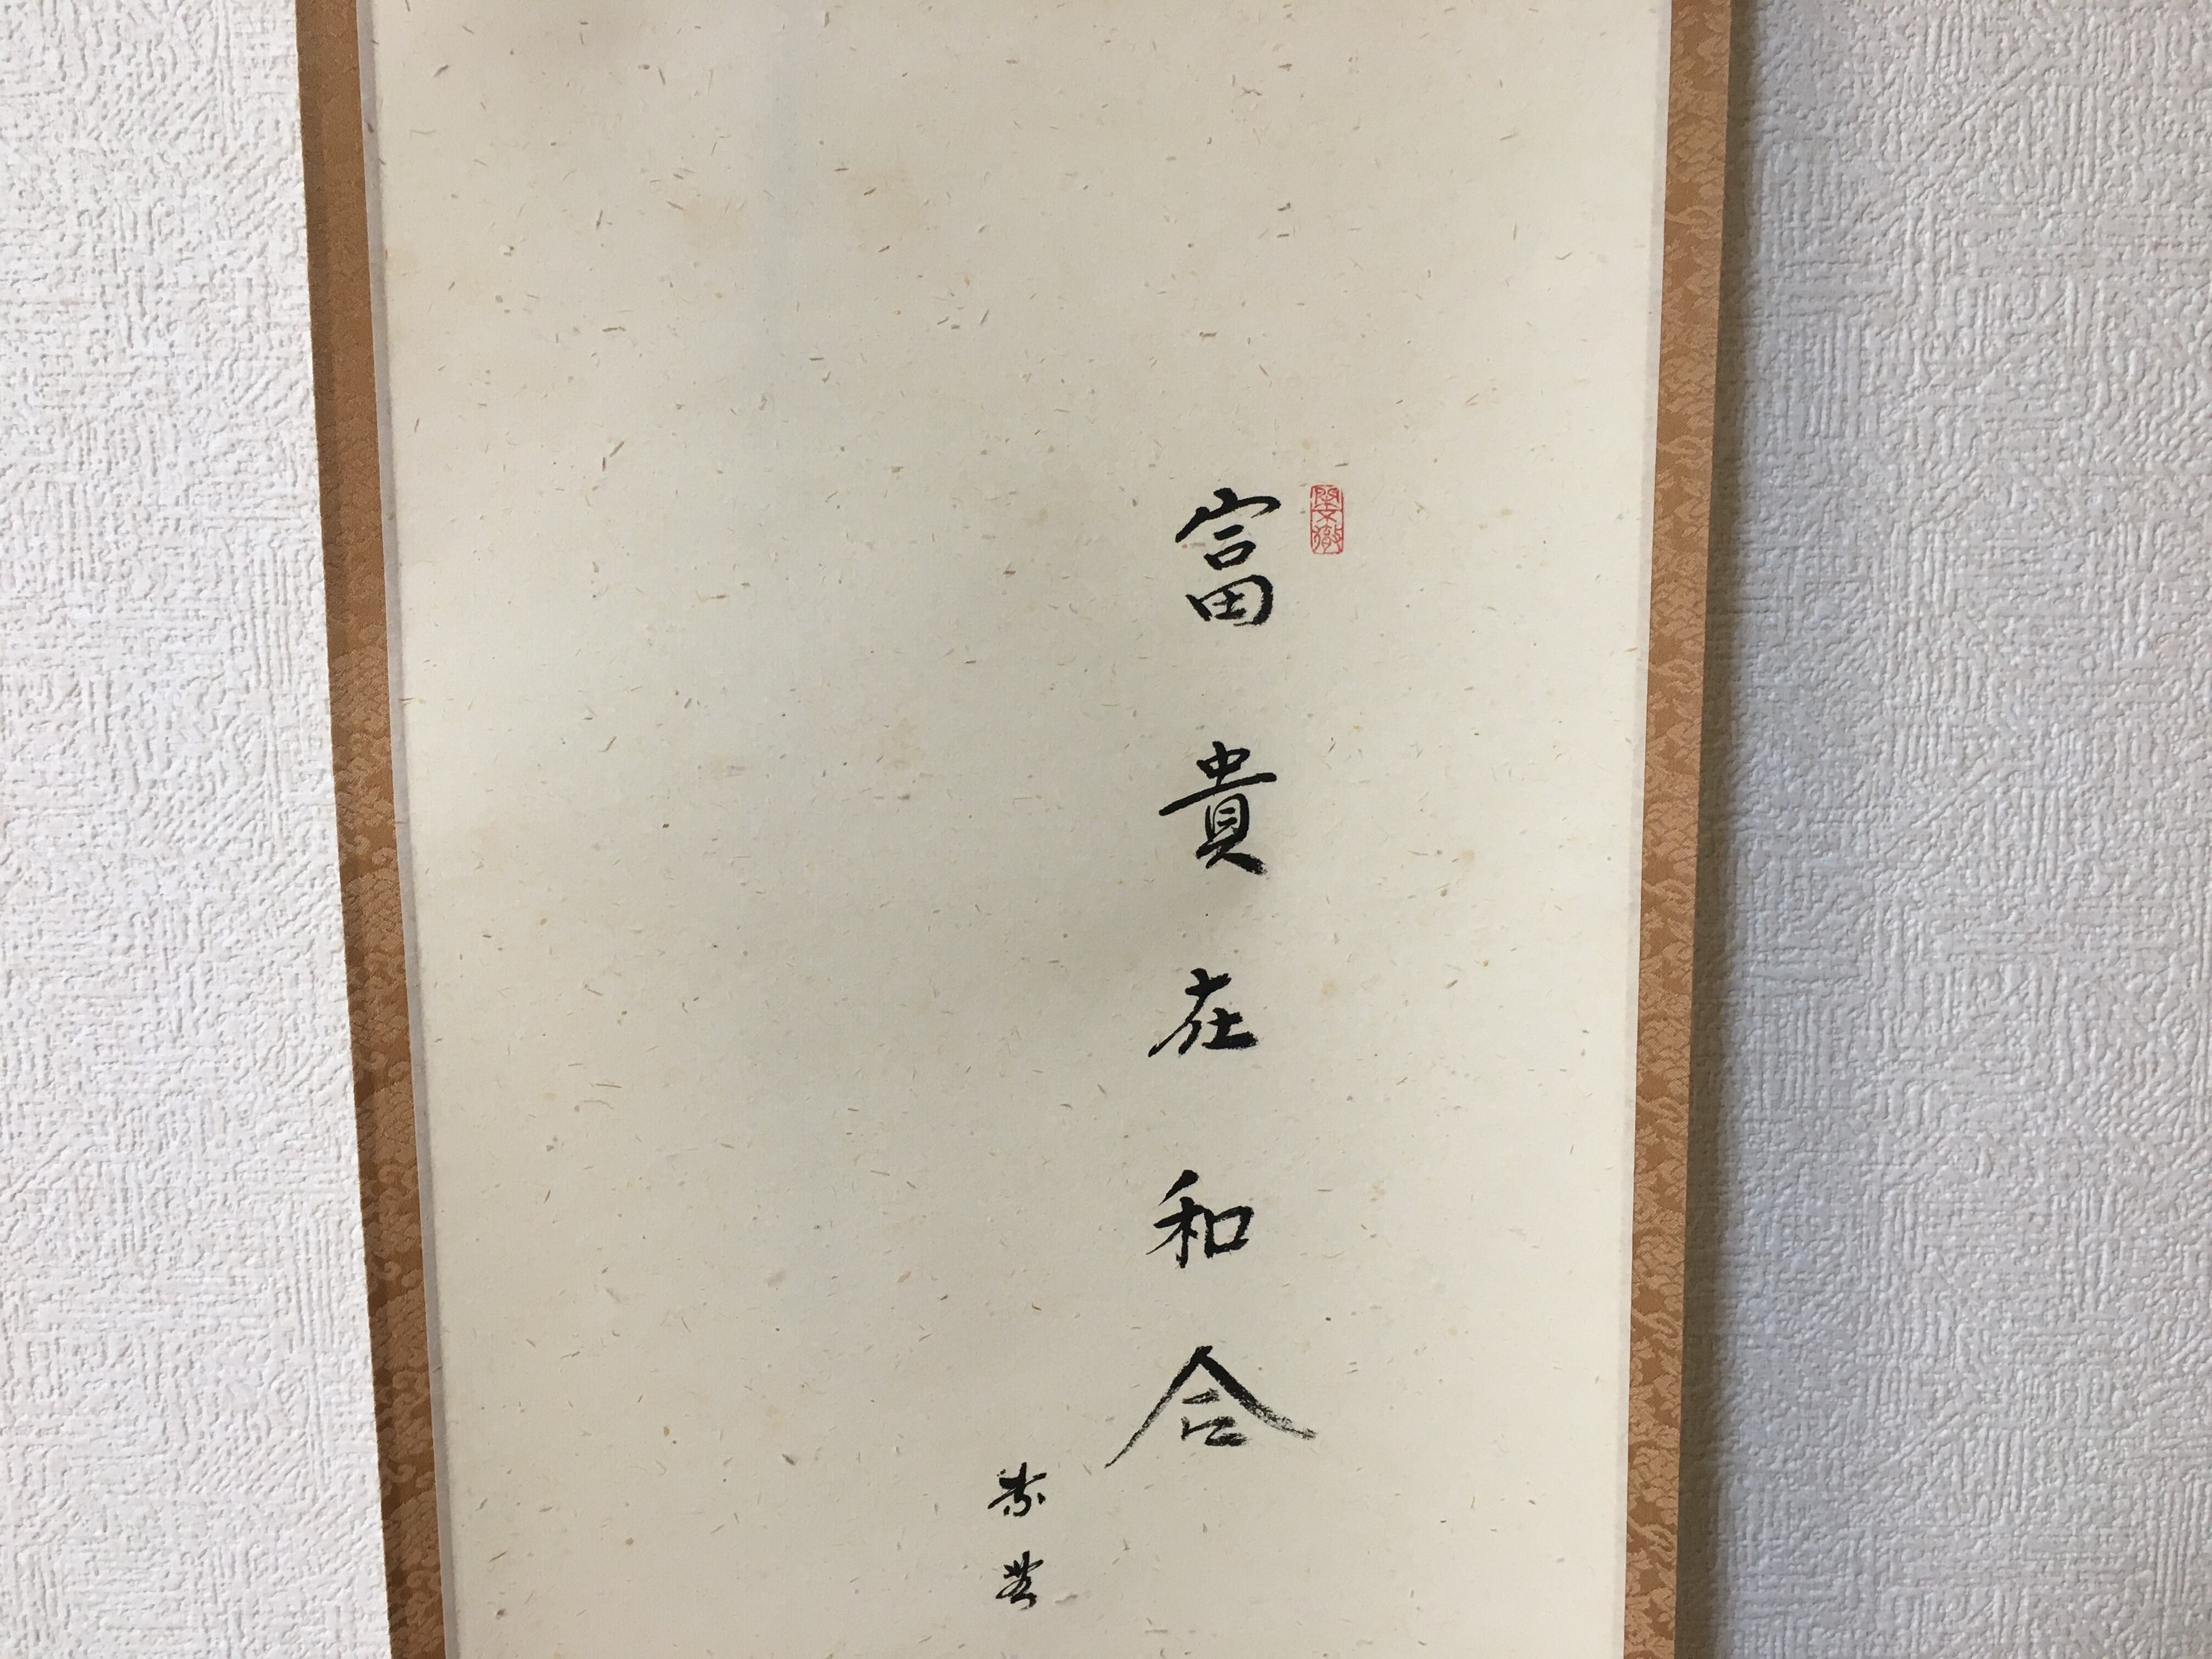 富貴在和合